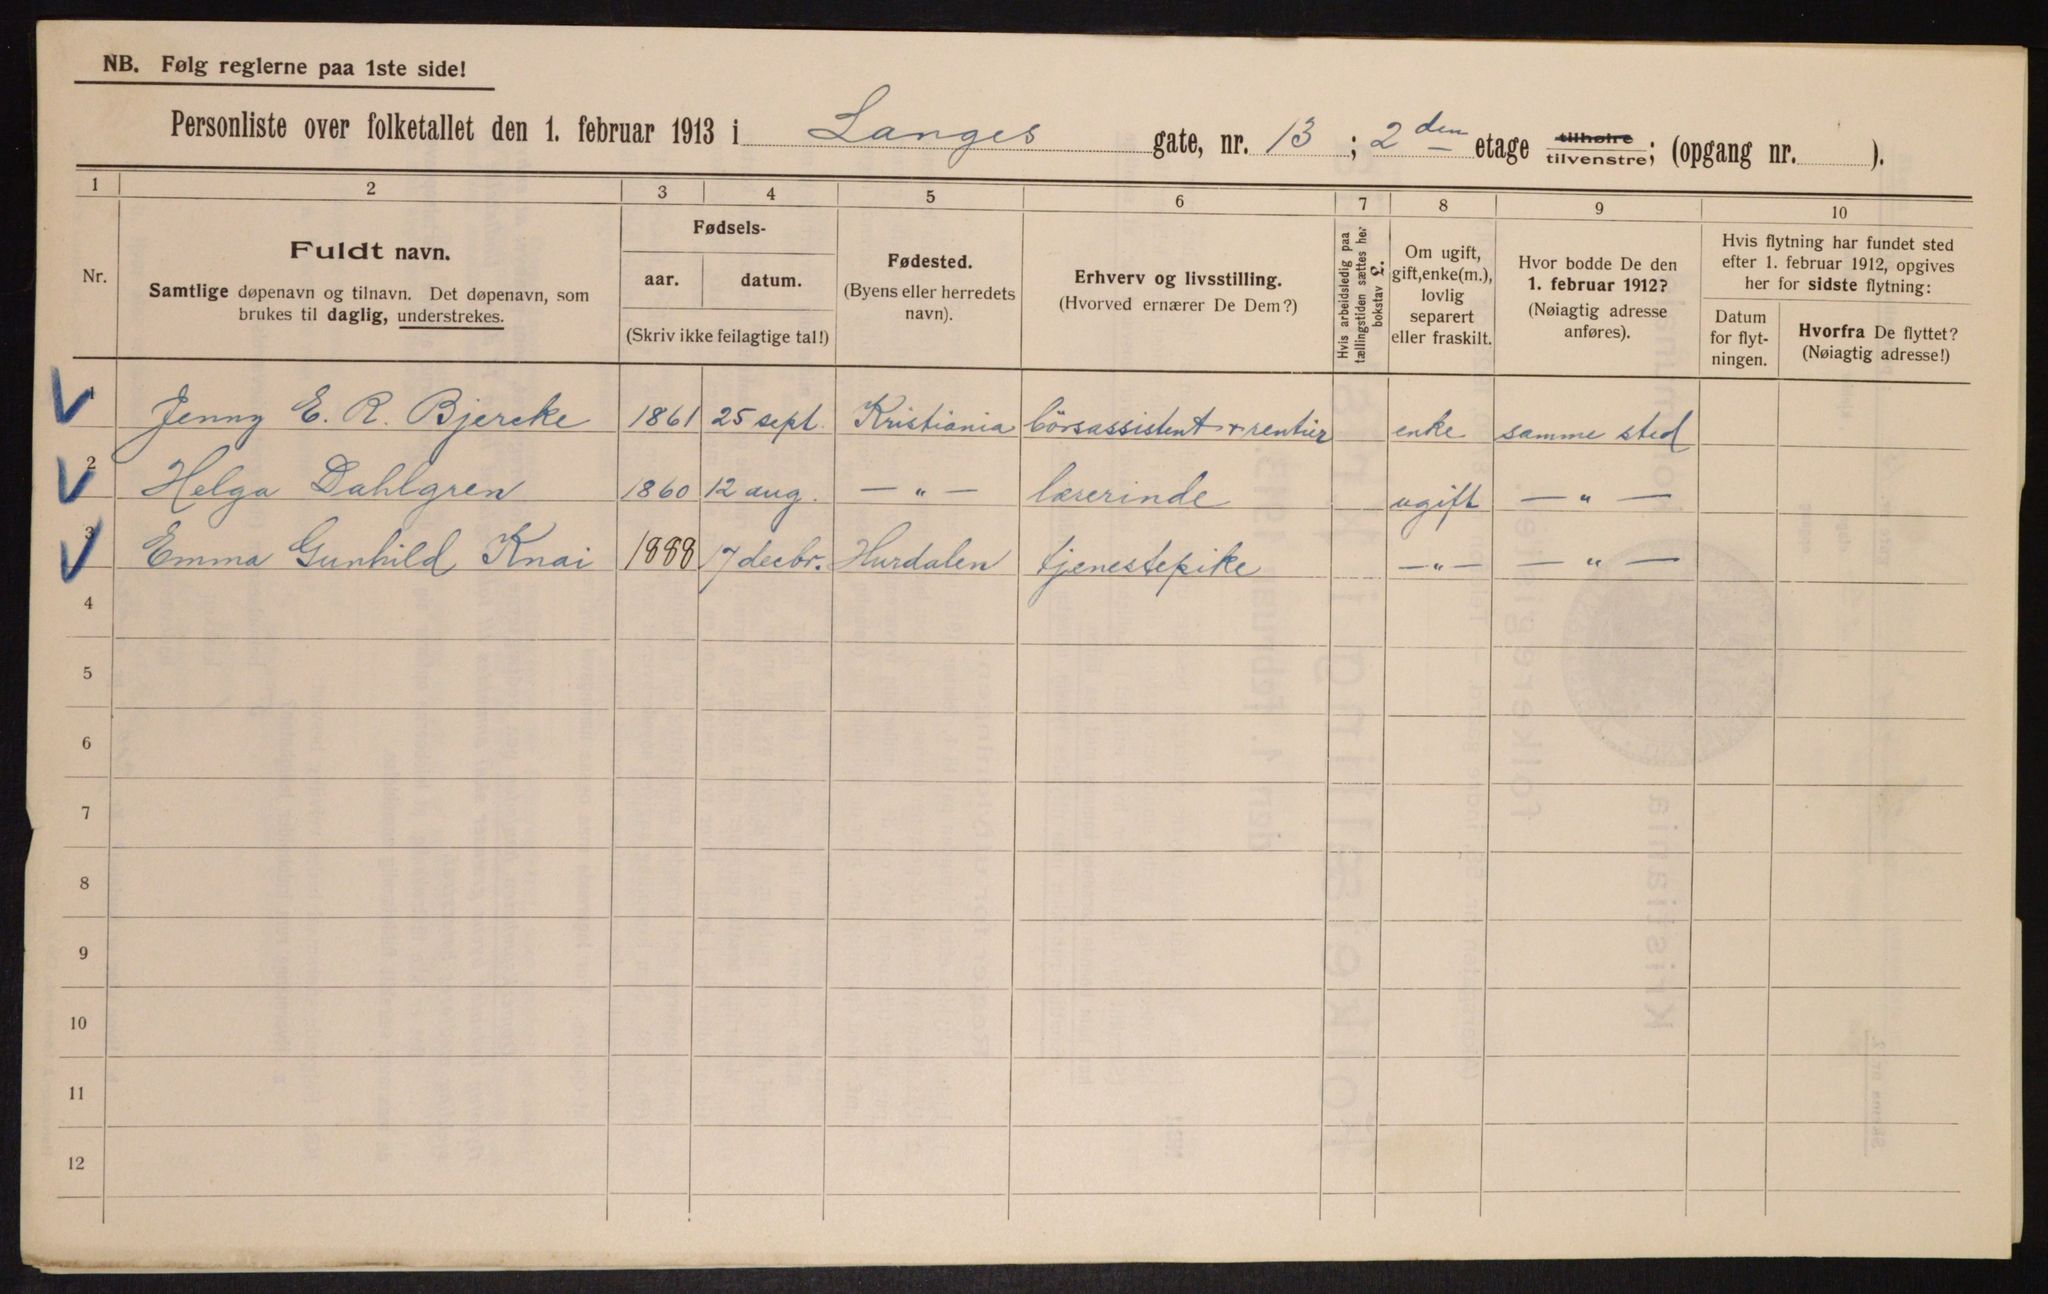 NB. Følg reglerne paa 1ste side!
Personliste over folketallet den 1. februar 1913 i Langes gate, nr. 13; 2den etage tilhøire tilvenstre; (opgang nr. ).
1 2 3 4 5 6 7 8 9 10
Nr.
Fuldt navn.
Samtlige døpenavn og tilnavn. Det døpenavn, som
brukes til daglig, understrekes.
Fødsels-
aar. datum.
(Skriv ikke feilagtige tal!)
Fødested.
(Byens eller herredets
navn).
Erhverv og livsstilling.
(Hvorved ernærer De Dem?)
Hvis arbeidsledig paa
tællingstiden sættes her
bokstav L.
Om ugift,
gift, enke(m.),
lovlig
separert
eller fraskilt.
Hvor bodde De den
1. februar 1912?
(Nøiagtig adresse
anføres).
Hvis flytning har fundet sted
efter 1. februar 1912, opgives
her for sidste flytning:
Datum
for flyt-
ningen.
Hvorfra De flyttet?
(Nøiagtig adresse!)
1 Jenny E. R. Bjercke 1861 25 sept. Kristiania börsassistent + rentier enke samme sted
2 Helga Dahlgren 1860 12 aug. — " — lærerinde ugift — " —
3 Emma Gunhild Knai 1888 17 decbr. Hurdalen tjenestepike — " — — " —
4
5
6
7
8
9
10
11
12